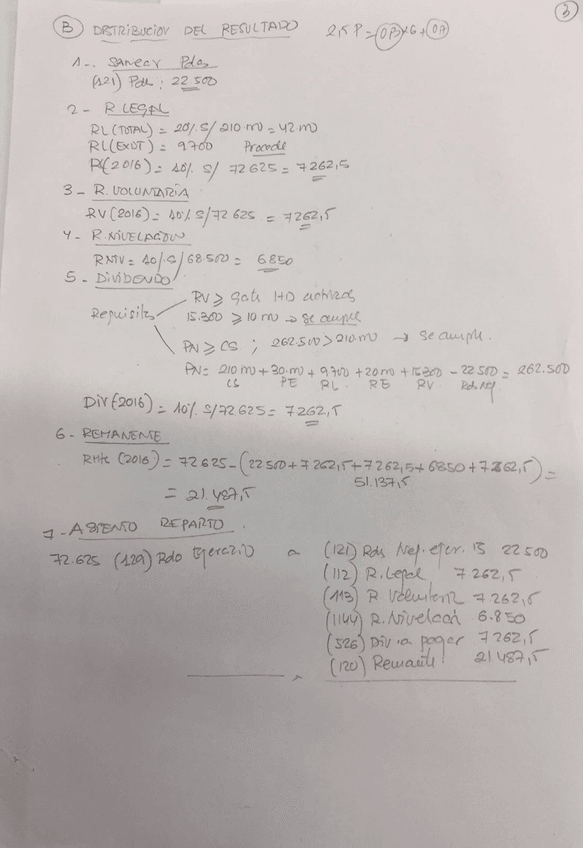 3
B DISTRIBUCION DEL RESULTADO 2,5 P =
1-. SANEAR Pdas
(121) Pdas: 22.500
2 - R. LEGAL
RL (TOTAL) = 20% s/ 210 m = 42 m
RL (EXIST) = 9700 Procede
RL (2016) = 10% s/ 72625 = 7262,5
3 - R. VOLUNTARIA
RV (2016) = 10% s/ 72 625 = 7262,5
4 - R. NIVELACION
RNIV = 10% s/ 68.500 = 6850
5 - DIVIDENDO
Requisitos RV ≥ gats I+D activados
15.300 ≥ 10 m → se cumple
PN ≥ CS ; 262.500 > 210 m → se cumple.
PN = 210 m + 30 m + 9,700 + 20 m + 15300 - 22 500 = 262.500
CS PE RL. RE RV Rdo Neg
Div (2016) = 10% s/ 72 625 = 7262,5
6 - REMANENTE
Rmte (2016) = 72 625 - (22 500 + 7 262,5 + 7262,5 + 6850 + 7262,5) =
51.137,5
= 21.487,5
7 - ASIENTO REPARTO
72.625 (129) Rdo Ejercicio a (121) Rds. Neg. ejer. 15 22 500
(112) R. Legal 7 262,5
(113) R Voluntaria 7 262,5
(1144) R. Nivelación 6.850
(526) Div. a pagar 7262,5
(120) Remante 21 487,5